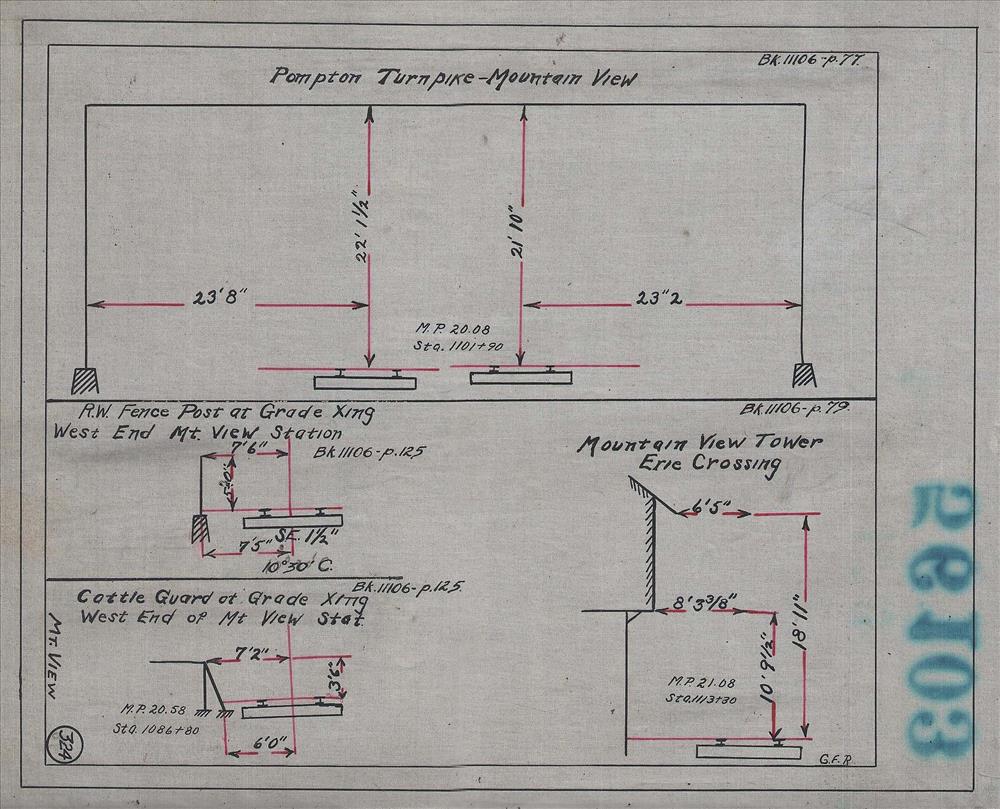 Bk.11106-p.77.
Pompton Turnpike-Mountain View
22' 1½"
21' 10"
23'8"
23"2
M.P. 20.08
Sta. 1101+90
R.W. Fence Post at Grade Xing
West End Mt. View Station
Bk 11106-p.125
7'6"
S.E. 1½"
7'5"
10°30' C.
Bk.11106-p.79.
Mountain View Tower
Erie Crossing
6'5"
8' 3⅜"
18' 11"
10' 9½"
M.P. 21.08
Sta. 1113+30
G.F.R.
Bk.11106-p.125.
Cattle Guard at Grade Xing
West End of Mt View Stat.
7'2"
3'3"
M.P. 20.58
Sta. 1086+80
6'0"
Mt. View
324
26103